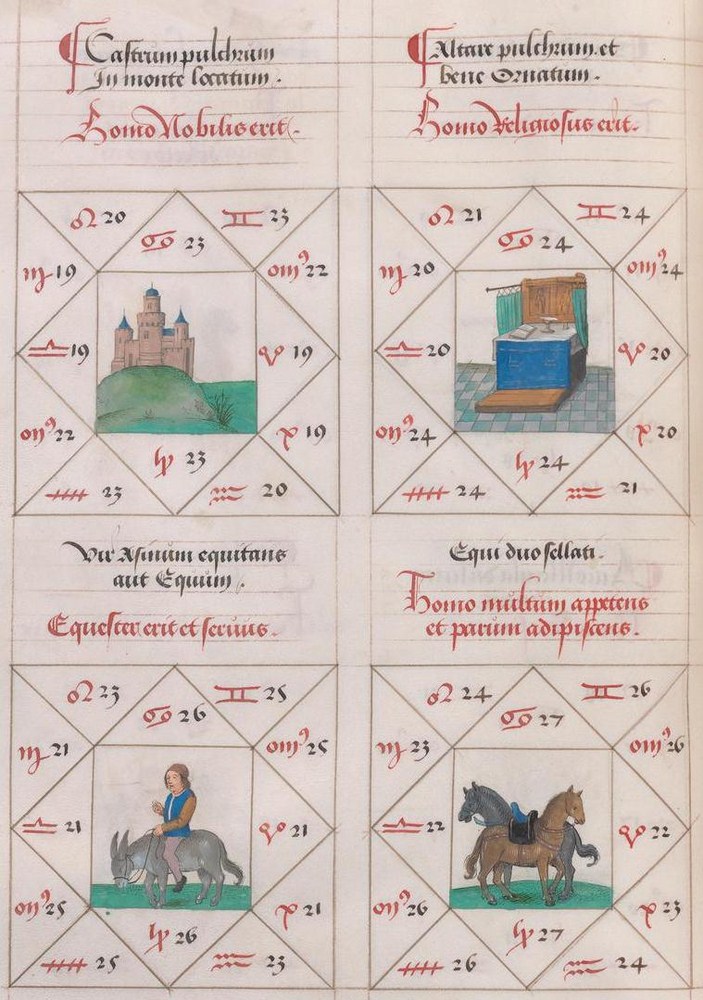 Castrum pulchrum
In monte locatum.
Homo Nobilis erit.
♌ 20
♊ 23
♋ 23
♍ 19
om⁹ 22
♎ 19
♈ 19
om⁹ 22
♓ 19
♑ 23
23
♒ 20
Altare pulchrum et
bene Ornatum.
Homo Religiosus erit.
♌ 21
♊ 24
♋ 24
♍ 20
om⁹ 24
♎ 20
♈ 20
om⁹ 24
♓ 20
♑ 24
24
♒ 21
Vir Asinum equitans
aut Equum.
Equester erit et seruus.
♌ 23
♊ 25
♋ 26
♍ 21
om⁹ 25
♎ 21
♈ 21
om⁹ 25
♓ 21
♑ 26
25
♒ 23
Equi duo sellati.
Homo multum appetens
et parum adipiscens.
♌ 24
♊ 26
♋ 27
♍ 23
om⁹ 26
♎ 22
♈ 22
om⁹ 26
♓ 23
♑ 27
26
♒ 24